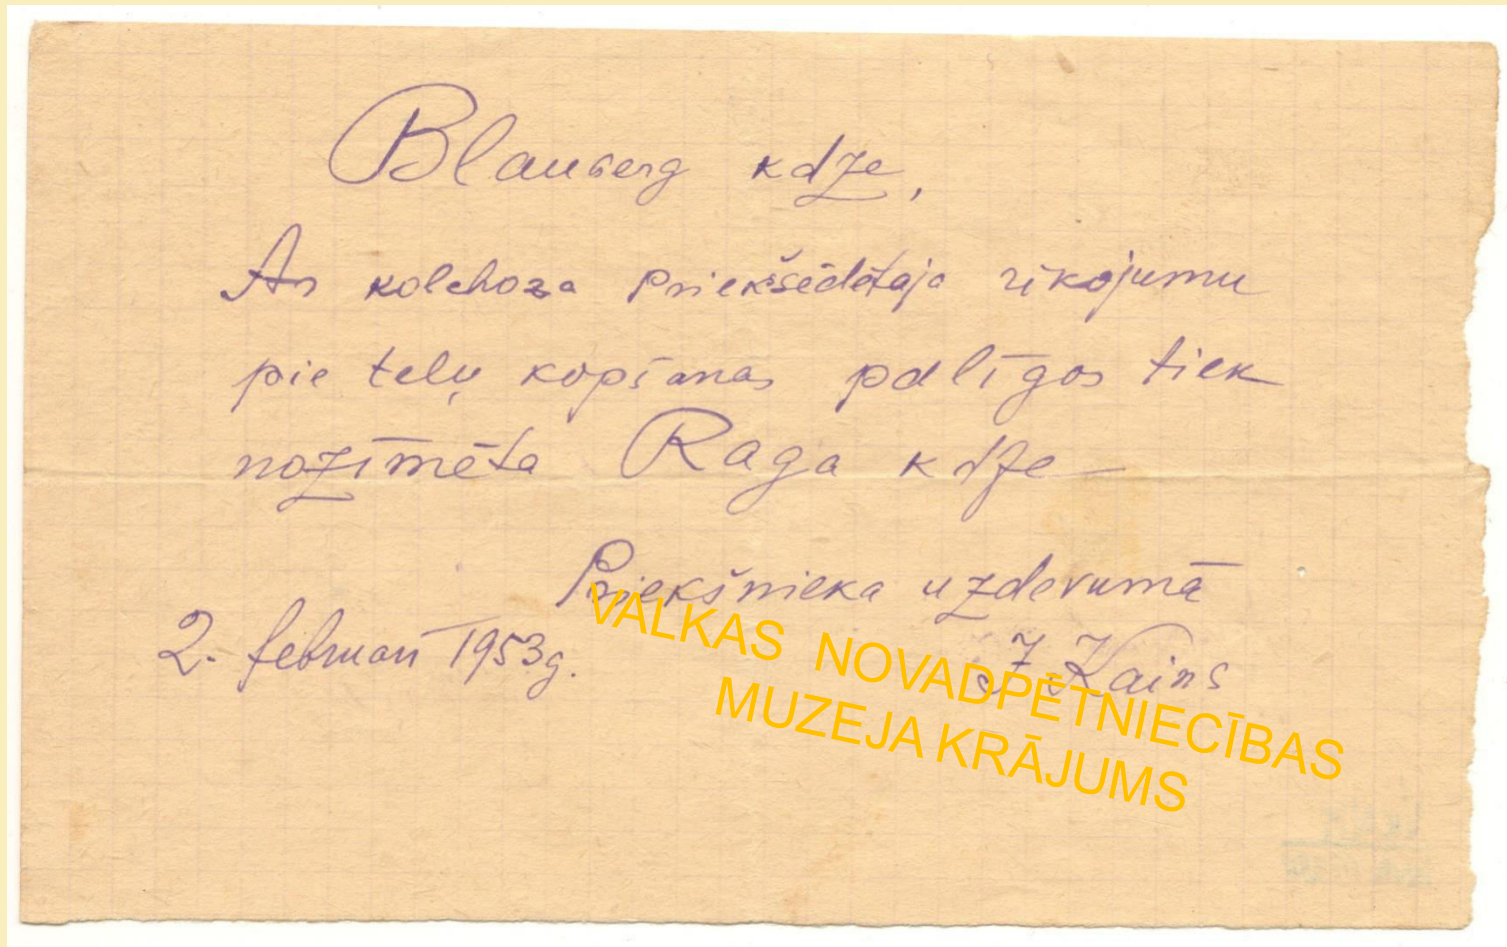 Blauberg kdze,
Ar kolchoza priekšēdētāja rīkojumu
pie teļu kopšanas palīgos tiek
nozīmēta Raga kdze
Priekšnieka uzdevumā
2. februarī 1953g.
J. Kains
VALKAS NOVADPĒTNIECĪBAS
MUZEJA KRĀJUMS